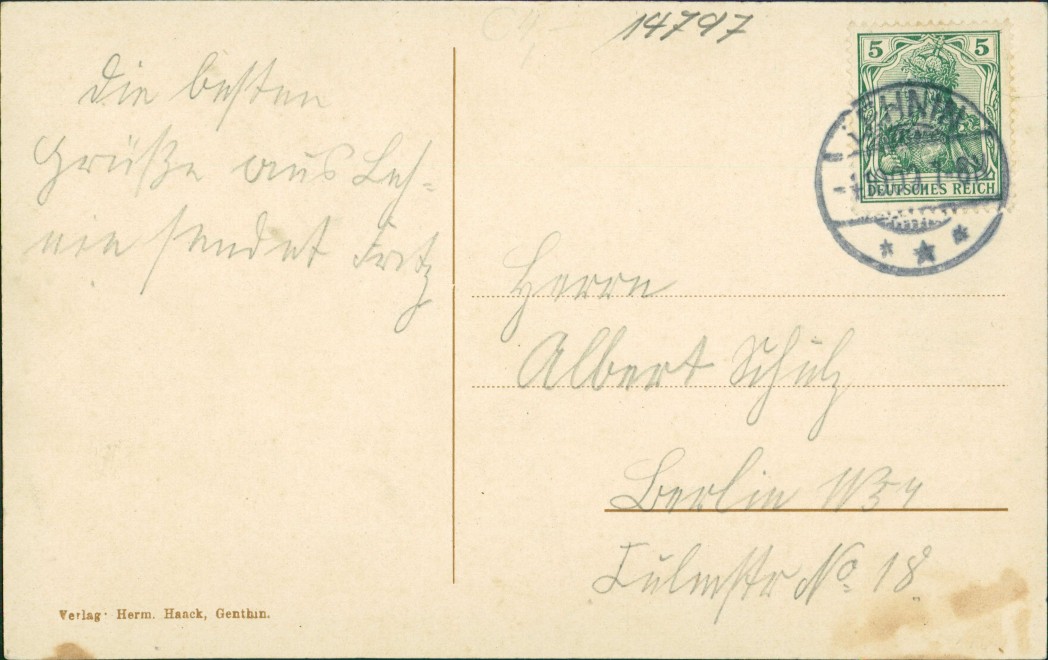 14797
Die besten
Grüße aus Leh-
nin sendet Fritz
5 5
LEHNIN
DEUTSCHES REICH
Herrn
Albert Schulz
Berlin W
Culmstr No. 18
Verlag Herm. Haack, Genthin.